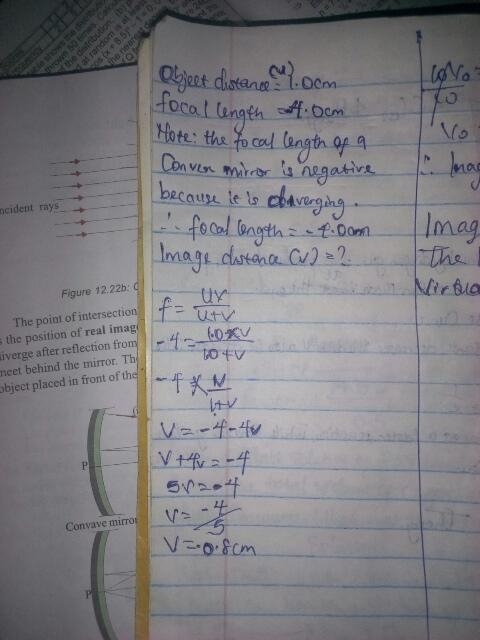 Object distance (u) = 1.0cm
focal length = 4.0cm
Note: the focal length of a
Convex mirror is negative
because it is diverging.
∴ focal length = -4.0cm
Image distance (v) = ?
f = uv
u+v
-4 = 1.0×v
1.0+v
-4 × v
1+v
V = -4-4v
V+4v = -4
5V = -4
V = -4
5
V = -0.8cm
Vo
∴ Imag
Imag
The
Virtua
ncident rays
Figure 12.22b: C
The point of intersection
s the position of real imag
iverge after reflection from
neet behind the mirror. The
object placed in front of the
P
Convave mirro
P